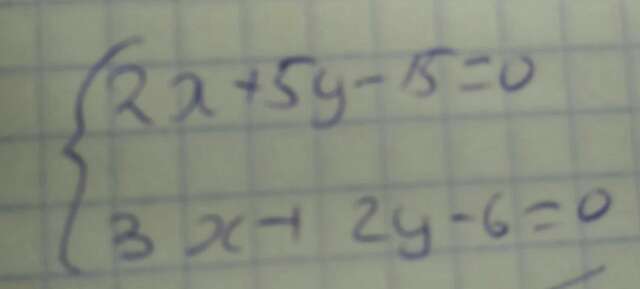 2x+5y-15=0
3x+2y-6=0